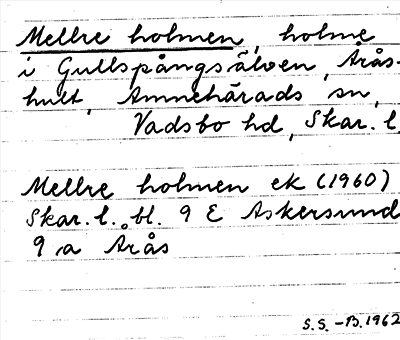 Mellre holmen, holme
i Gullspångsälven, Årås-
hult, Amnehärads sn,
Vadsbo hd, Skar. l.
Mellre holmen ek (1960)
Skar. l. bl. 9 E Askersund
9 a Årås
S.S. -B. 1962